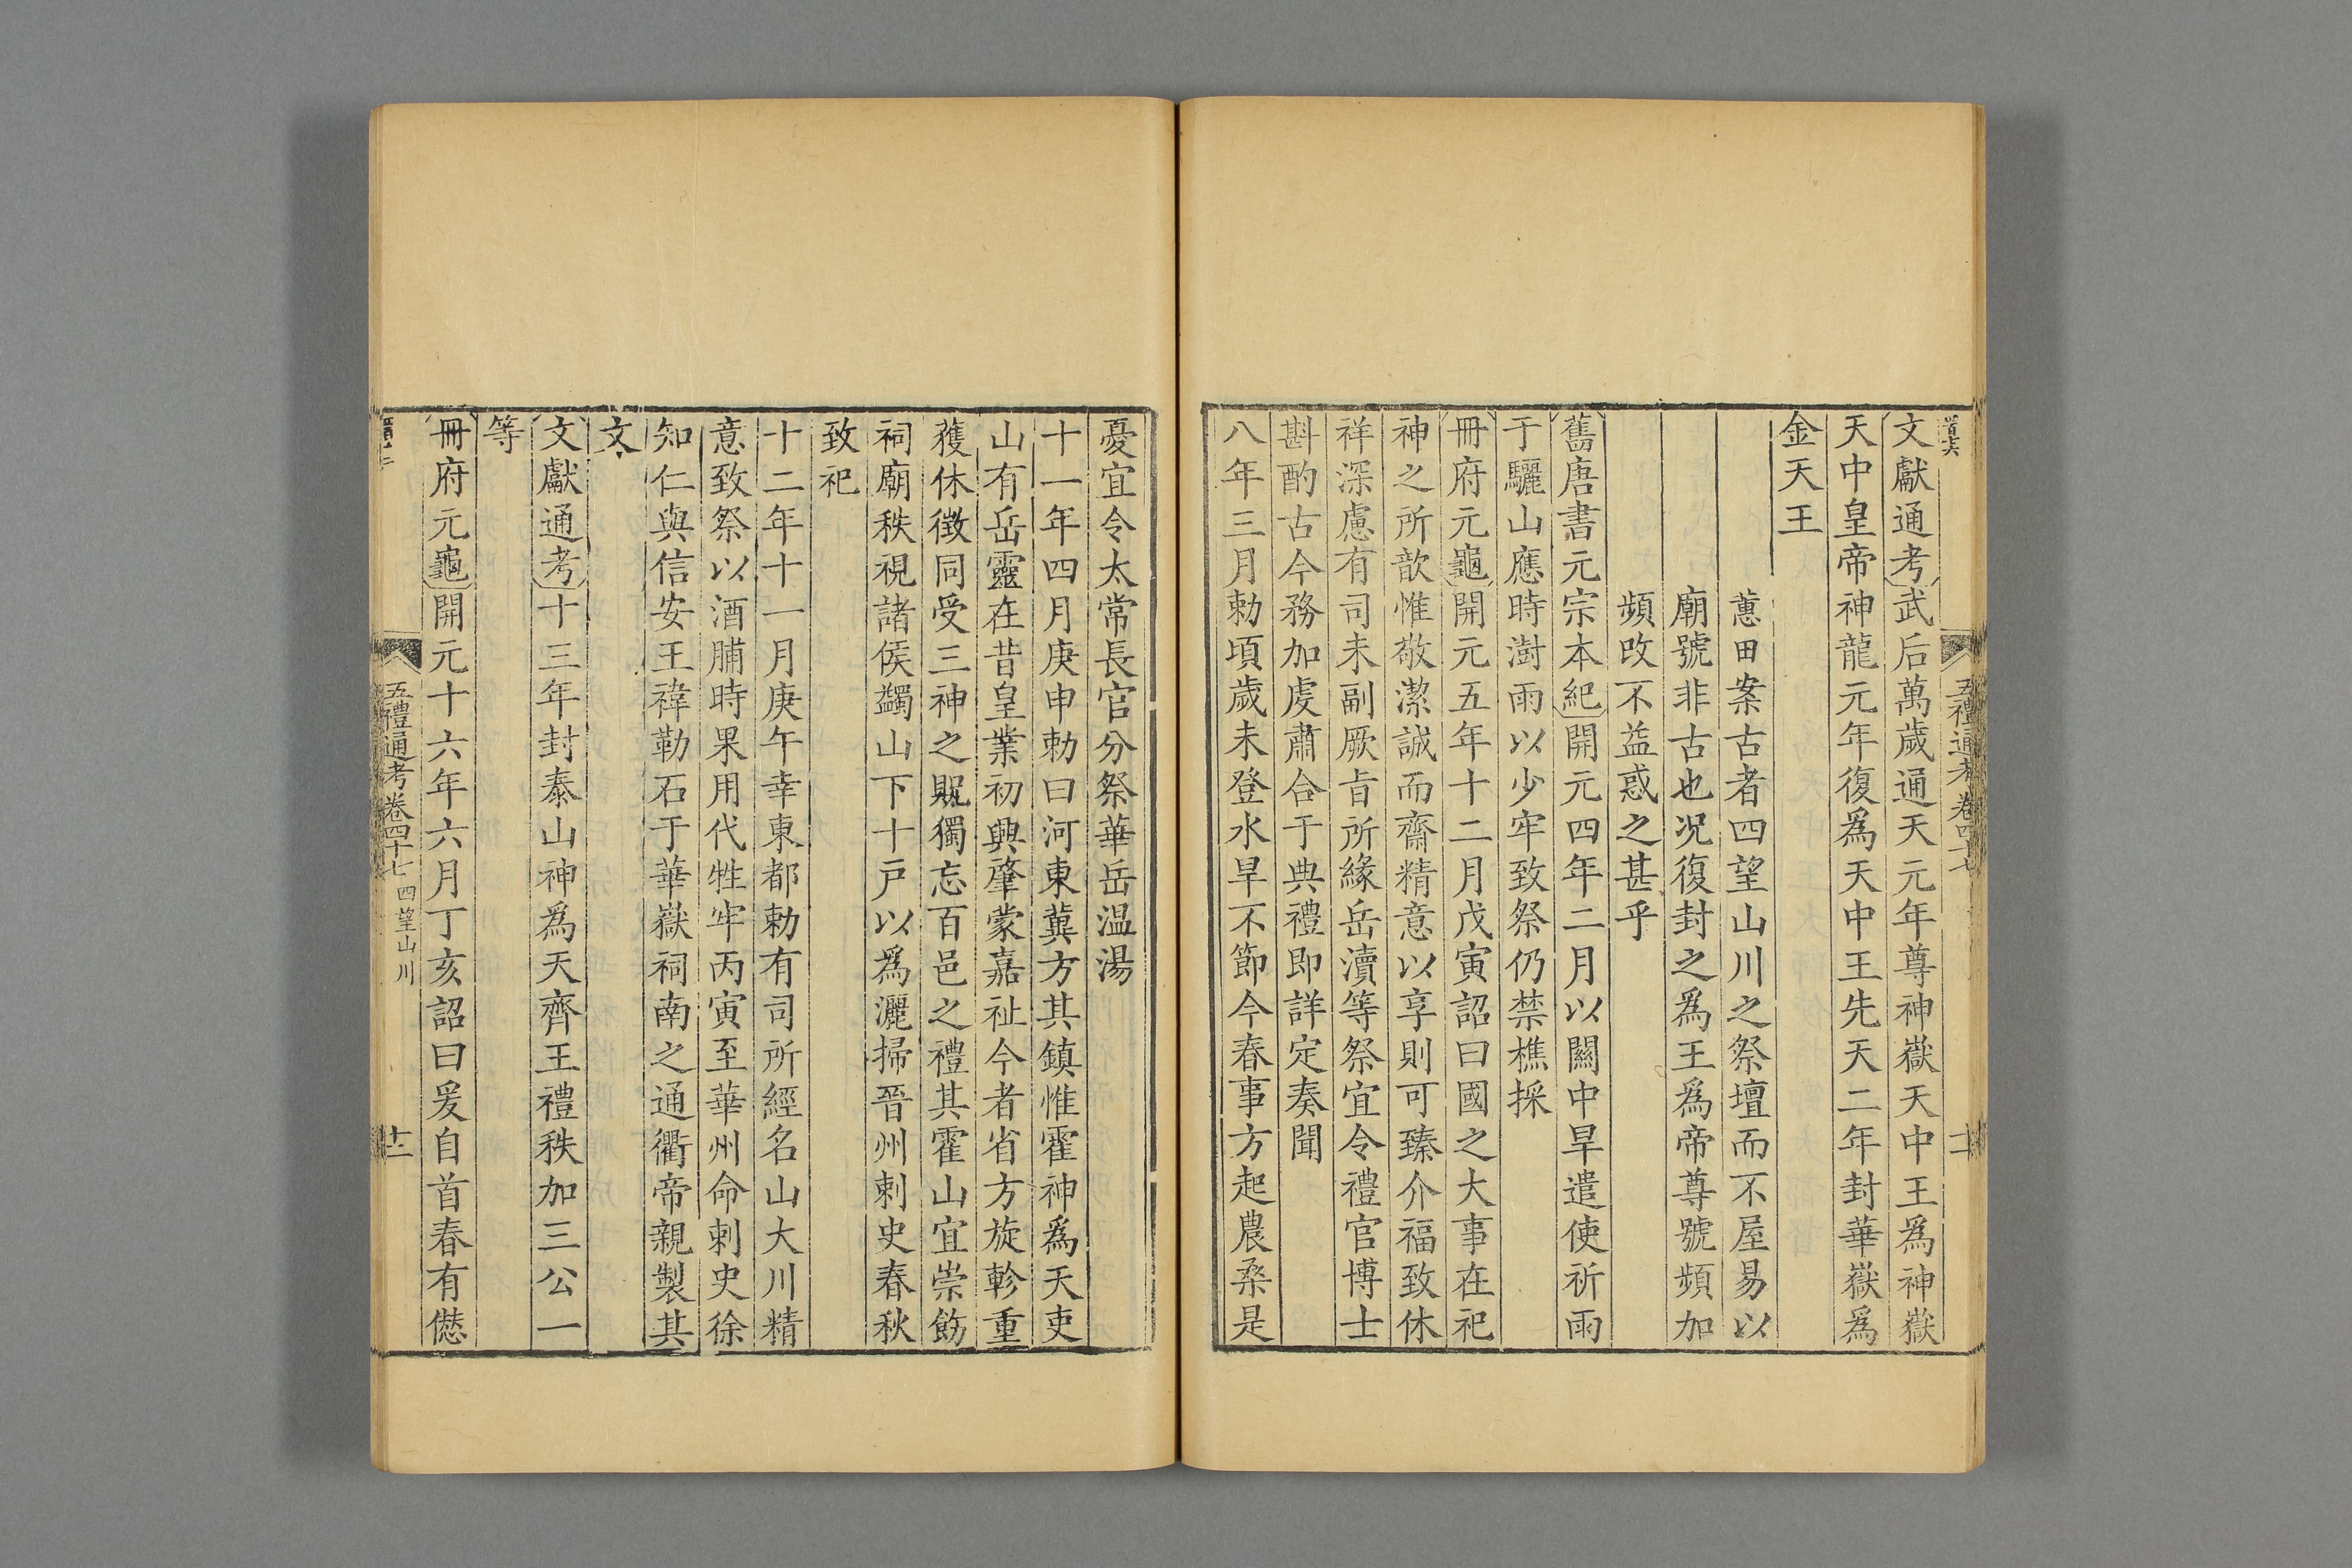 五禮通考卷四十七
文獻通考武后萬歲通天元年尊神嶽天中王爲神嶽
天中皇帝神龍元年復爲天中王先天二年封華嶽爲
金天王
蕙田案古者四望山川之祭壇而不屋易以
廟號非古也况復封之爲王爲帝尊號頻加
頻改不益惑之甚乎
舊唐書元宗本紀開元四年二月以關中旱遣使祈雨
于驪山應時澍雨以少牢致祭仍禁樵採
冊府元龜開元五年十二月戊寅詔曰國之大事在祀
神之所歆惟敬潔誠而齋精意以享則可臻介福致休
祥深慮有司未副厥旨所緣岳瀆等祭宜令禮官博士
斟酌古今務加虔肅合于典禮即詳定奏聞
八年三月勅頃歲未登水旱不節今春事方起農桑是
憂宜令太常長官分祭華岳温湯
十一年四月庚申勅曰河東冀方其鎮惟霍神爲天吏
山有岳靈在昔皇業初興肇蒙嘉祉今者省方旋軫重
獲休徴同受三神之貺獨忘百邑之禮其霍山宜崇飭
祠廟秩視諸侯蠲山下十戸以爲灑掃晉州刺史春秋
致祀
十二年十一月庚午幸東都勅有司所經名山大川精
意致祭以酒脯時果用代牲牢丙寅至華州命刺史徐
知仁與信安王禕勒石于華嶽祠南之通衢帝親製其
文
文獻通考十三年封泰山神爲天齊王禮秩加三公一
等
冊府元龜開元十六年六月丁亥詔曰爰自首春有僽
五禮通考卷四十七 四望山川 十二